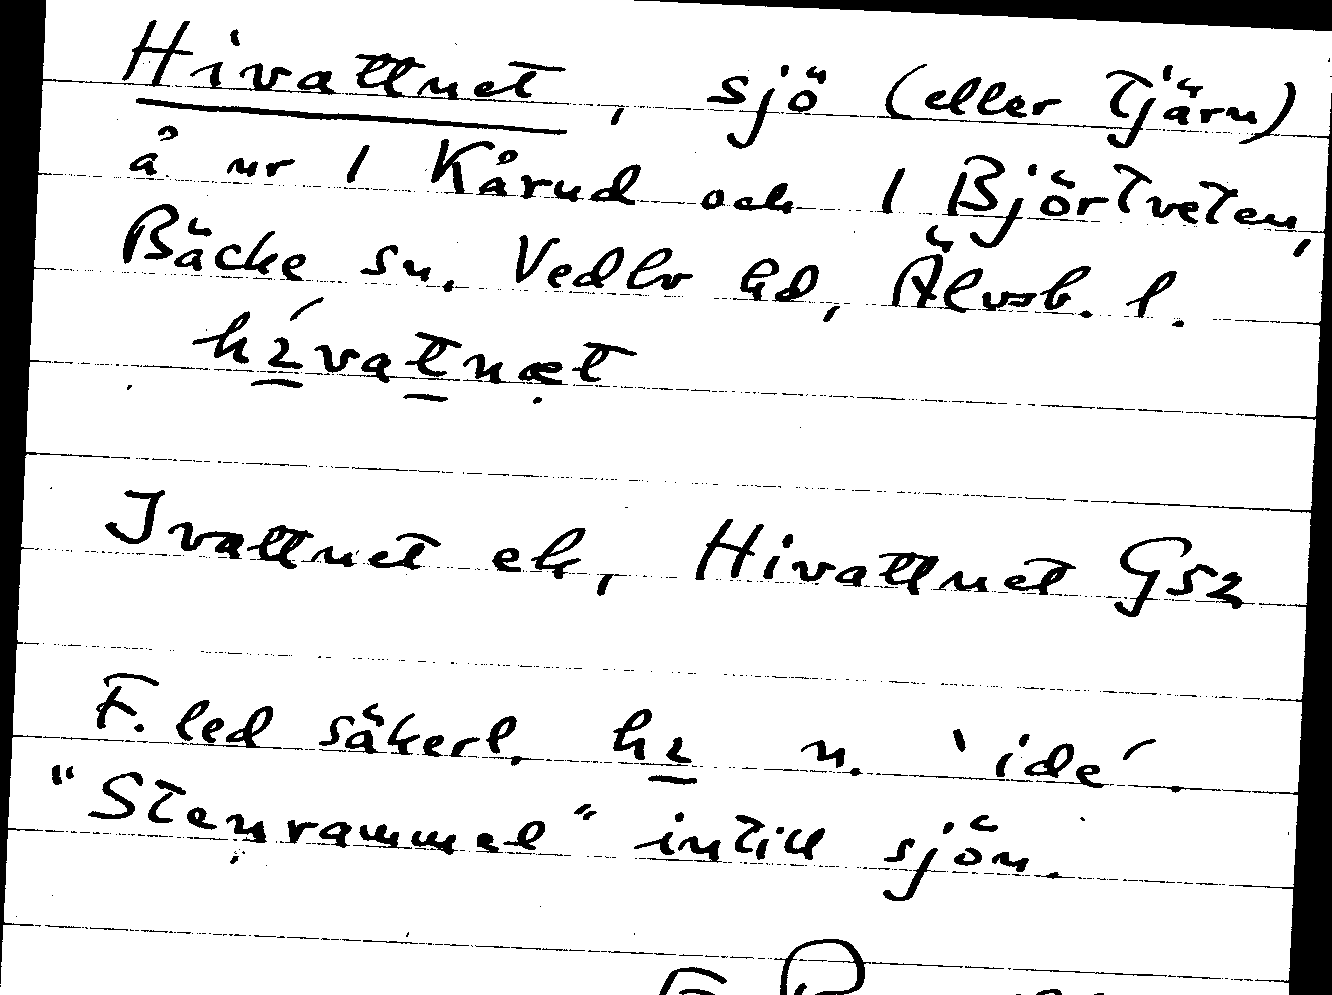 Hivattnet, sjö (eller tjärn)
å nr 1 Kårud och 1 Björtveten,
Bäcke sn. Vedbo hd, Älvsb. l.
hívatnæt
Ivattnet ek, Hivattnet G52
F. led säkerl. hi n. `ide´.
"Stenrammel" intill sjön.